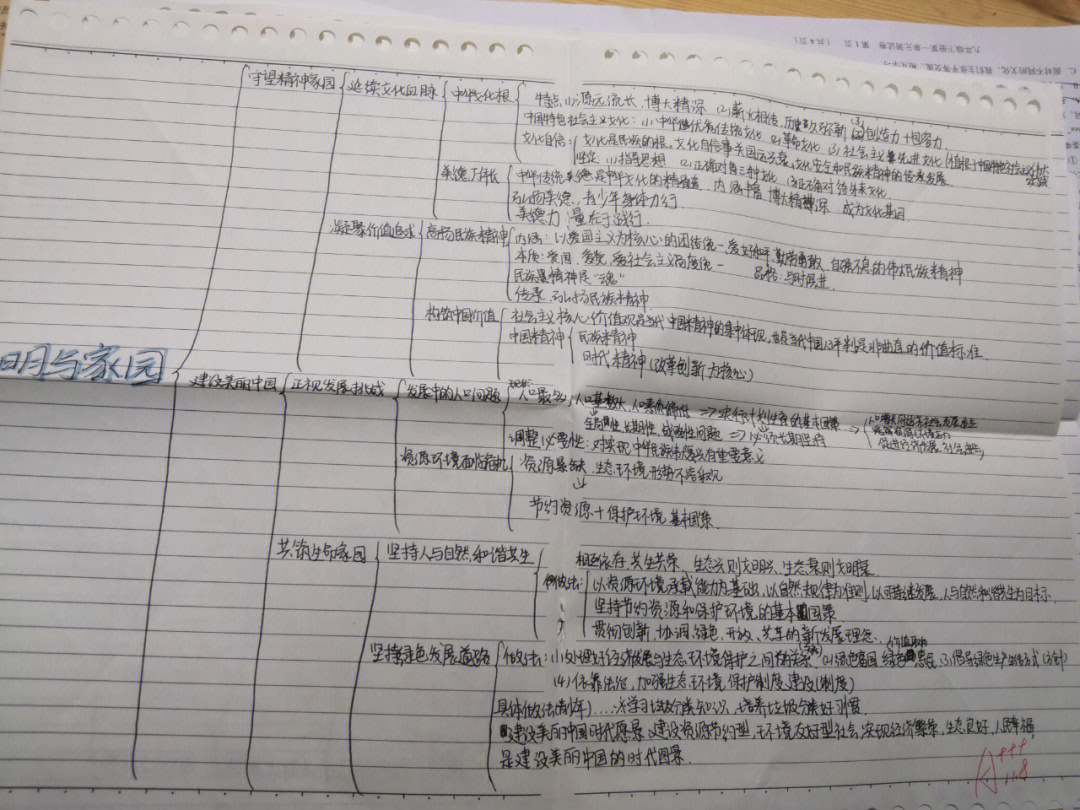 九年级下册第一单元测试卷 第1页 (共4页)
守望精神家园 延续文化血脉 中华文化根 特点 (1)源远流长、博大精深 (2)薪火相传、历久弥新 (3)创造力+包容力
中国特色社会主义文化:(1)中华优秀传统文化 (2)革命文化 (3)社会主义先进文化
文化自信:文化是民族的根。文化自信事关国运兴衰、文化安全和民族精神的传承发展。
坚定 (1)指导思想 (2)正确对待三种文化 (3)正确对待外来文化
美德万年长 中华传统美德是中华文化的精髓,内涵丰富、博大精深 成为文化基因
弘扬美德,青少年身体力行
美德力量在于践行.
凝聚价值追求 高扬民族精神 内涵:以爱国主义为核心的团结统一、爱好和平、勤劳勇敢、自强不息的伟大民族精神
本质:爱国、爱党、爱社会主义高度统一 品格:与时俱进
民族精神是“魂”
传承、弘扬民族精神
构筑中国价值 社会主义核心价值观是当代中国精神的集中体现,也是当代中国评判是非曲直的价值标准
中国精神 民族精神
时代精神(改革创新为核心)
日月与家园
建设美丽中国 正视发展挑战 发展中的人口问题 现状:人口最多,人口基数大、人口素质偏低 ⇒ 实行计划生育的基本国策 ⇒
全局性、长期性、战略性问题 ⇒ 必须长期坚持
调整必要性:对实现中华民族 有重要意义
资源环境面临危机 资源 缺、生态环境形势不容乐观
↓
节约资源+保护环境 基本国策
共筑生命家园 坚持人与自然和谐共生 相互依存、共生共荣 生态兴则文明兴、生态衰则文明衰
做法:以资源环境承载能力为基础,以自然规律为准则,以可持续发展、人与自然和谐共生为目标
坚持节约资源和保护环境的基本国策
贯彻创新、协调、绿色、开放、共享的新发展理念
坚持绿色发展道路 做法:(1)处理好经济发展与生态环境保护之间的关系 (2)绿色富国 绿色惠民 (3)倡导绿色生产生活方式(方针)
(4)依靠法治,加强生态环境保护制度建设(制度)
具体做法(青少年)……※学习垃圾分类知识,培养垃圾分类好习惯
建设美丽中国时代愿景 建设资源节约型、环境友好型社会,实现经济繁荣、生态良好、人民幸福
是建设美丽中国的时代图景.
A+++
11.8